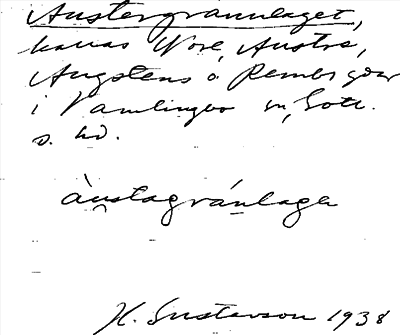 Austergrannlaget,
kallas Nore, Austre,
Angstens o Rembs gdar
i Vamlingbo sn, Gotl.
s. hd.
àustagránlagε
H. Gustavson 1938